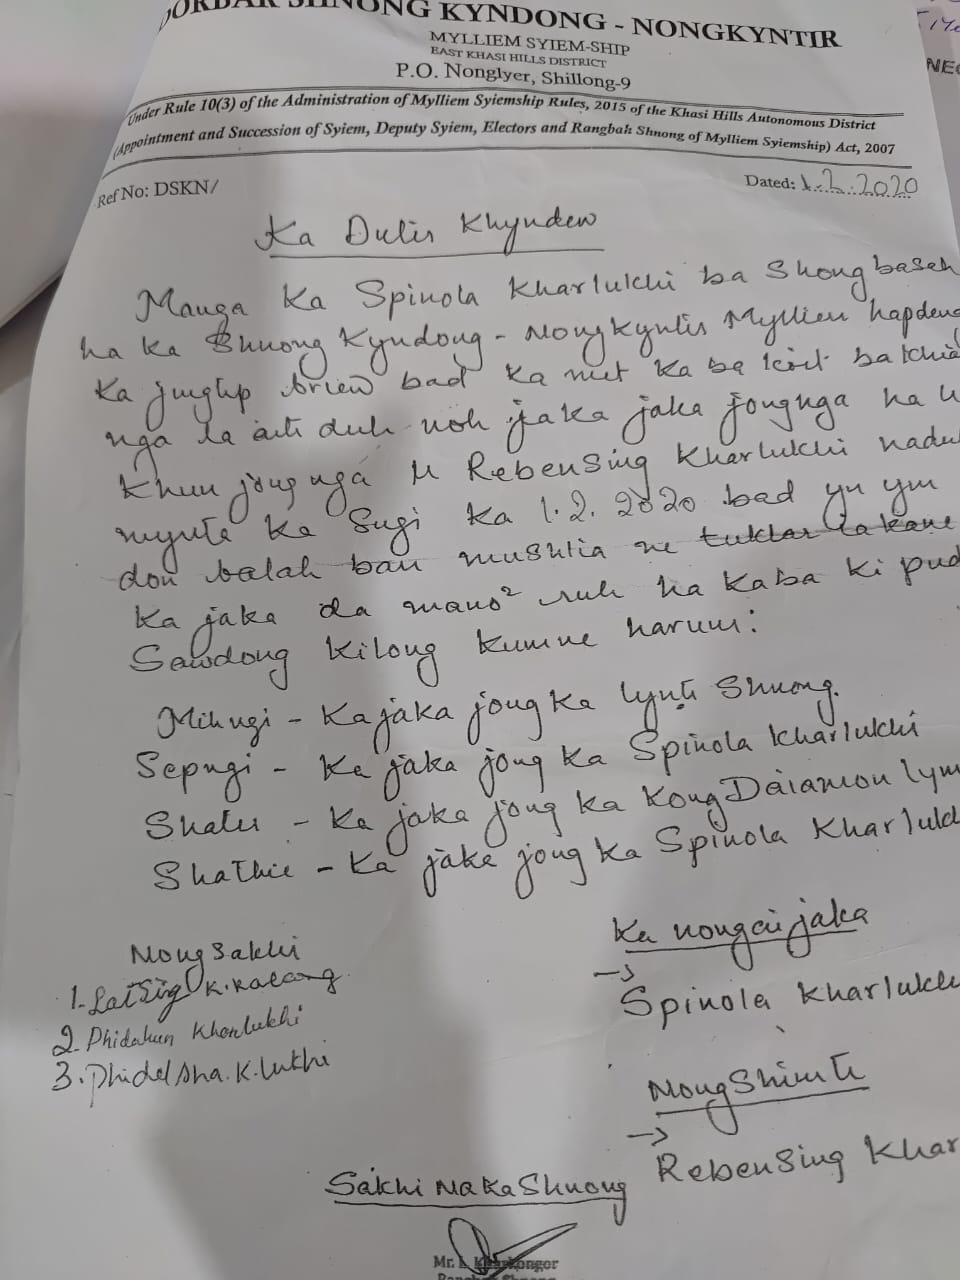 DORBAR SHNONG KYNDONG - NONGKYNTIR
MYLLIEM SYIEM-SHIP
EAST KHASI HILLS DISTRICT
P.O. Nonglyer, Shillong-9
Under Rule 10(3) of the Administration of Mylliem Syiemship Rules, 2015 of the Khasi Hills Autonomous District
(Appointment and Succession of Syiem, Deputy Syiem, Electors and Rangbah Shnong of Mylliem Syiemship) Act, 2007
Ref No: DSKN/
Dated: 1.2.2020
Ka Dulir Khyndew
Ma nga Ka Spinola Kharlukhi ba Shong baseh
ha ka Shnong Kyndong - Nongkyntir Myllien hapdeng
Ka jinglip briew bad ka met ka ba koit ba
nga la aiti duh noh ïa ka jaka jong nga ha u
Khun jong nga U Rebensing Kharlukhi nadu
mynta ka Sngi ka 1.2.2020 bad yn ym
don balah ban mushlia ne tuklar ïa kane
Ka jaka da mano² ruh ha kaba ki pud
Sawdong kilong kumne harum:
Mihngi - Ka jaka jong ka lynti Shnong.
Sepngi - Ka jaka jong ka Spinola Kharlukhi
Shatei - Ka jaka jong ka Kong Daiamon lym
Shathie - Ka jaka jong ka Spinola Kharlukh
Nongsakhi
1. Latsing K.
2. Phidakun Kharlukhi
3. Phidelsha. K. lukhi
Ka nongai jaka
→ Spinola Kharlukhi
Nongshimti
→ Rebensing Khar
Sakhi Na Ka Shnong
Mr. L. Kharkongor